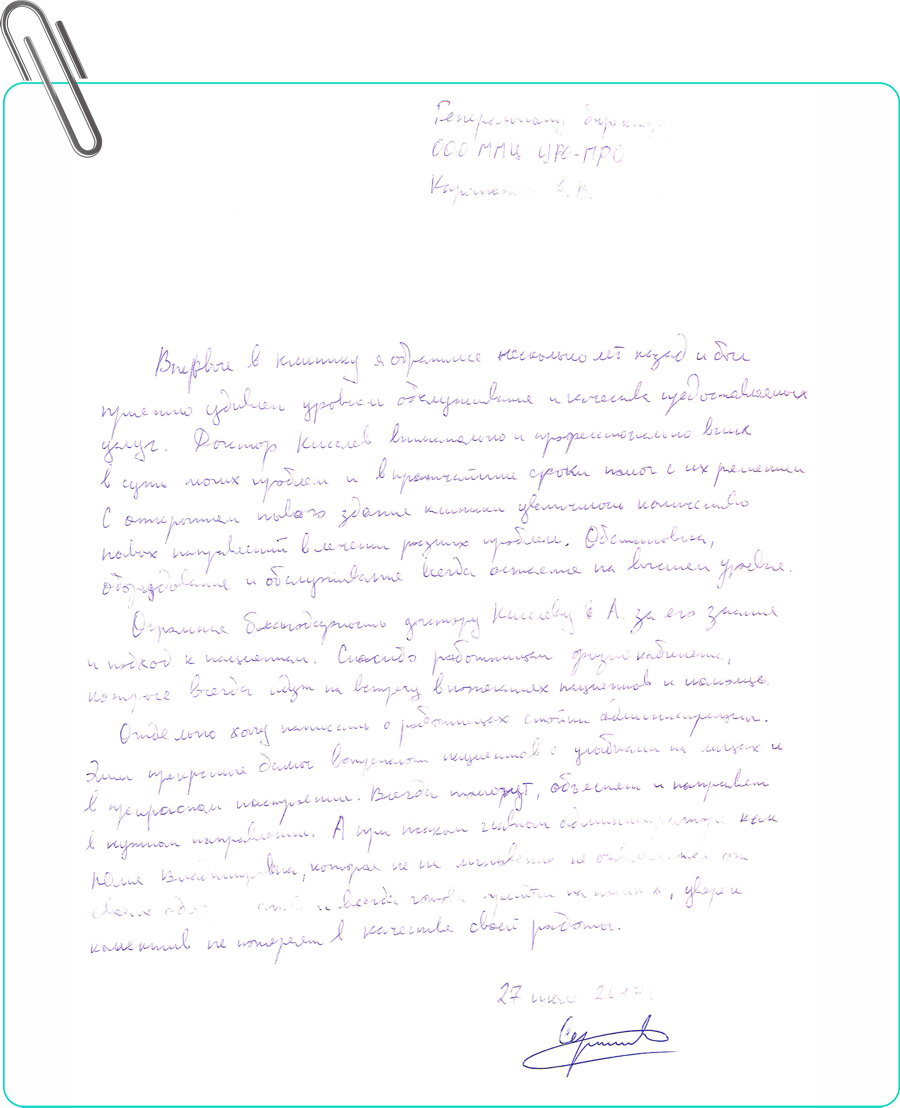 Генеральному директору
ООО ММЦ УРО-ПРО
В.В.
Впервые в клинику я обратился несколько лет назад и был
приятно удивлен уровнем обслуживания и качества предоставляемых
услуг. Доктор Киселев внимательно и профессионально вник
в суть моих проблем и в кратчайшие сроки помог с их решением
С открытием нового здания клиники увеличилось количество
новых направлений в лечении разных проблем. Обстановка,
оборудование и обслуживание всегда остаются на высшем уровне.
Огромная благодарность доктору Киселеву А. за его знания
и подход к пациентам. Спасибо работницам физиокабинета,
которые всегда идут на встречу в пожеланиях пациентов и помощи.
Отдельно хочу написать о работницах стойки администрации.
Эти прекрасные дамы встречают пациентов с улыбками на лицах и
в прекрасном настроении. Всегда помогут, объяснят и направят
в нужном направлении. А при таком главном администраторе как
Владимировна, которая не на мгновение не отвлекается от
своих и всегда готова прийти на помощь, уверен
коллектив не потеряет в качестве своей работы.
27 июля